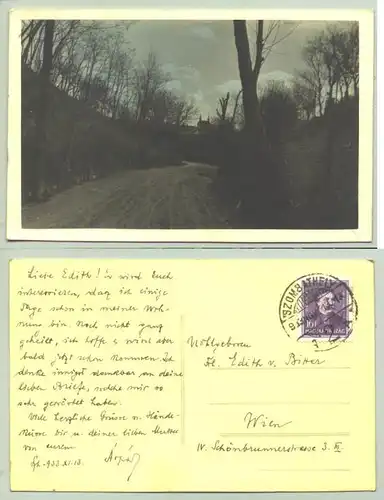 Liebe Edith! Es wird Euch
interessieren, dass ich einige
Tage schon in meiner Woh-
nung bin. Noch nicht ganz
geheilt, ich hoffe es wird aber
bald jetzt schon kommen. Ich
denke innigst dankbar an deine
lieben Briefe, welche mir so
sehr gewartet haben.
Viele herzliche Grüsse u. Hände-
küsse dir u. deiner lieben Mutter
von eurem
933.XI.13. Árpád
SZOMBATHELY
MAGYARORSZÁG
Wohlgeboren
Frl. Edith v. Bitter
Wien
IV. Schönbrunnerstrasse 3. III.